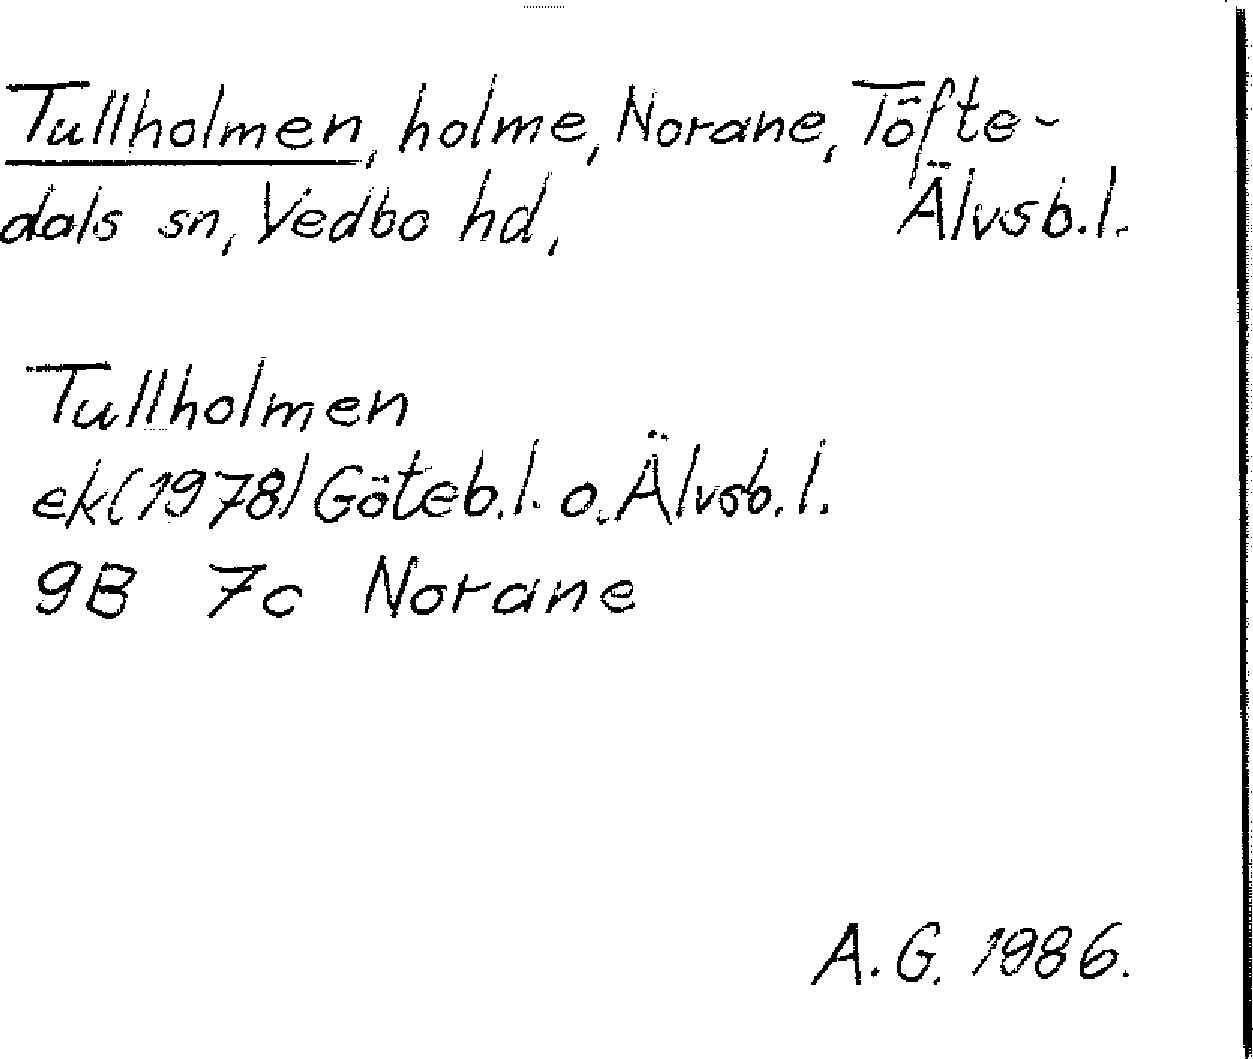 Tullholmen, holme, Norane, Töfte-
dals sn, Vedbo hd, Älvsb.l.
Tullholmen
ek(1978) Göteb.l. o. Älvsb.l.
9B 7c Norane
A.G. 1986.